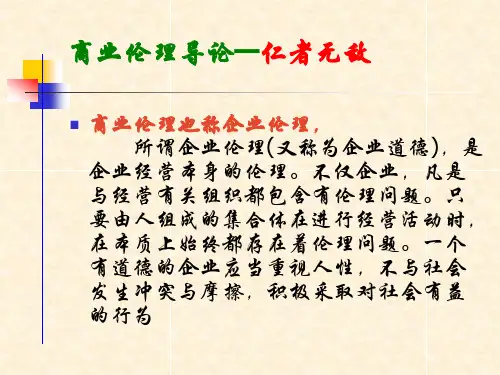 商业伦理导论—仁者无敌
商业伦理也称企业伦理，
所谓企业伦理(又称为企业道德)，是
企业经营本身的伦理。不仅企业，凡是
与经营有关组织都包含有伦理问题。只
要由人组成的集合体在进行经营活动时，
在本质上始终都存在着伦理问题。一个
有道德的企业应当重视人性，不与社会
发生冲突与摩擦，积极采取对社会有益
的行为